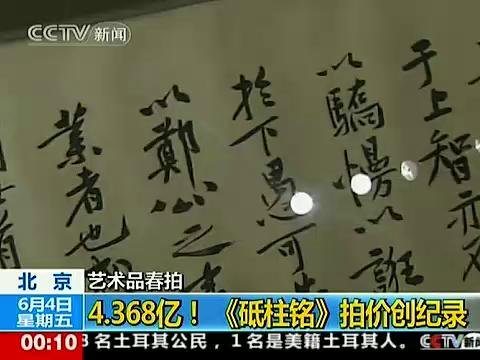 CCTV 新闻
于上智亦不
以驕慢以誑
於下愚可
以鄭公之
業者也
北京
艺术品春拍
6月4日
星期五
4.368亿！《砥柱铭》拍价创纪录
00:10
名土耳其公民，1名美籍土耳其人。
CCTV新闻